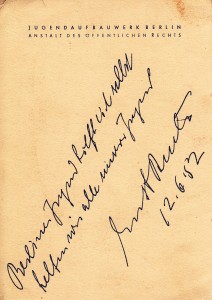 JUGENDAUFBAUWERK BERLIN
ANSTALT DES ÖFFENTLICHEN RECHTS
Berliner Jugend hilft sich selbst
helfen wir alle unserer Jugend
Ernst Reuter
12.6.52